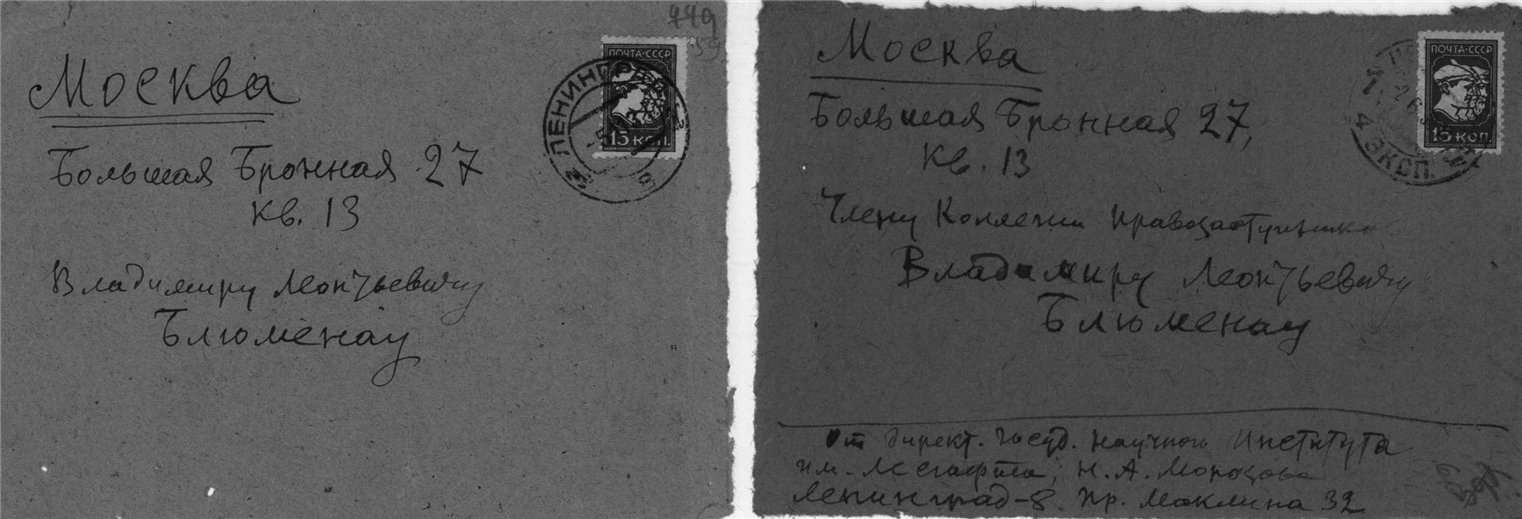 449
59
ПОЧТА-СССР
15 КОП.
ЛЕНИНГРАД
Москва
Большая Бронная 27
кв. 13
Владимиру Леонтьевичу
Блюменау
ПОЧТА-СССР
15 КОП.
4 ЭКСП.
Москва
Большая Бронная 27,
кв. 13
Члену Коллегии Правозаступников
Владимиру Леонтьевичу
Блюменау
От Директ. Госуд. Научного Института
им. Лесгафта, Н. А. Морозова
Ленинград-8. Пр. Маклина 32